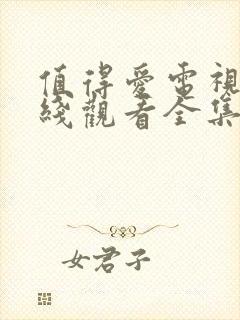 值得愛電視
綫觀看全集
女君子